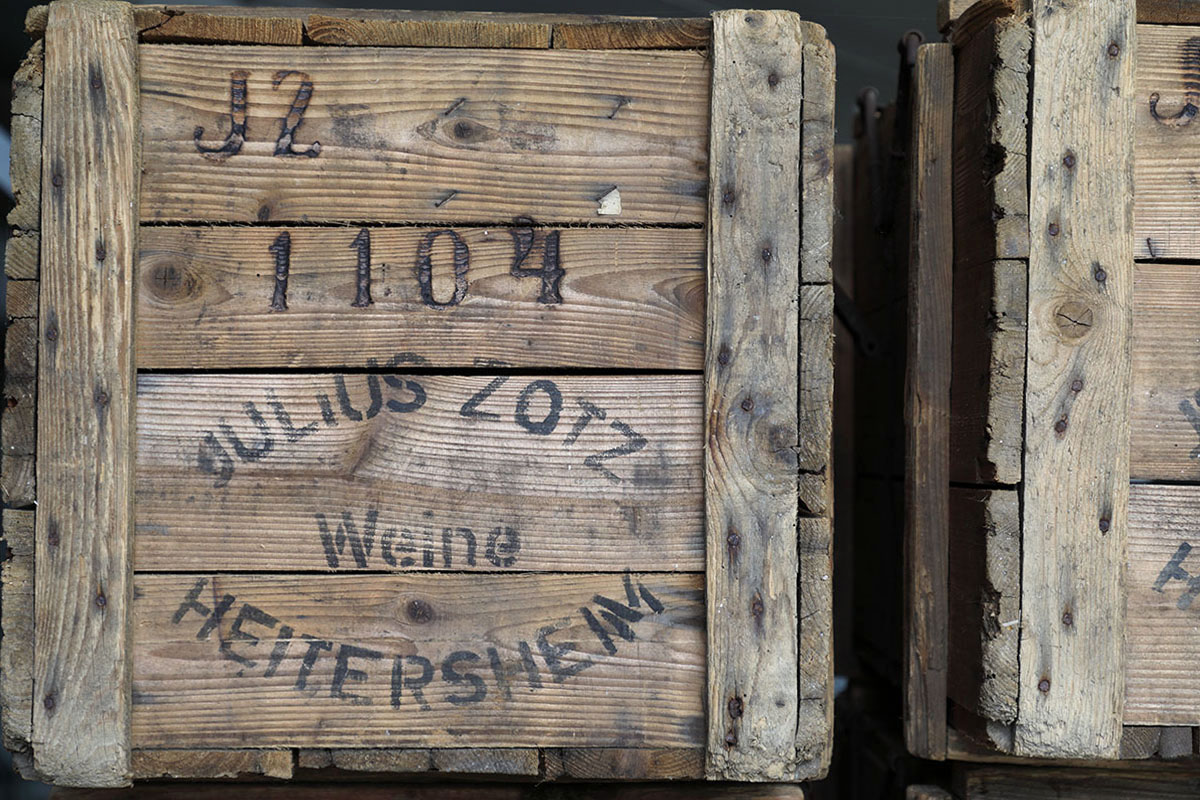 J2
1104
JULIUS ZOTZ
Weine
HEITERSHEIM